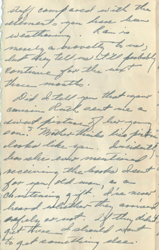 stuff compared with the
elements you have been
weathering. Rain is
merely a novelty to me,
but they tell me it'll probably
continue for the next
three months.
Did I tell you that your
cousin sent me a
sweet picture of her young
son? Mother thinks his picture
looked like you. Incidentally,
has she ever mentioned
receiving the books I sent
for you old man as a
christening gift. I've never
heard whether they arrived
safely or not. If they didn't
get there I should want
to get something else.